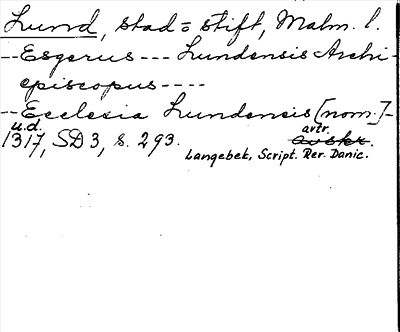 Lund, stad = stift, Malm. l.
--Esgerus--- Lundensis Archi-
episcopus----
--Ecclesia Lundensis [nom.]-
u.d. avtr.
1317, SD 3, s. 293. avskr.
Langebek, Script. Rer. Danic.